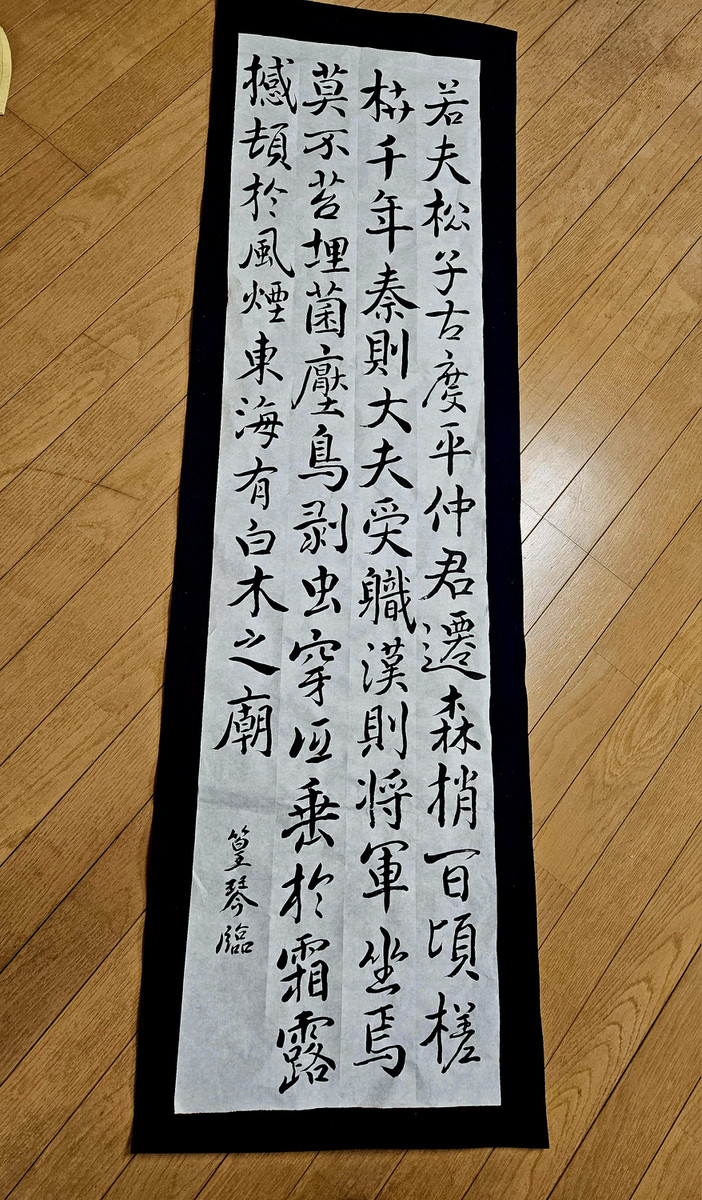 若夫松子古度平仲君遷森梢百頃槎
枿千年秦則大夫受軄漢則将軍坐焉
莫不苔埋菌壓鳥剥虫穿低垂於霜露
撼頓於風煙東海有白木之廟
篁琴臨